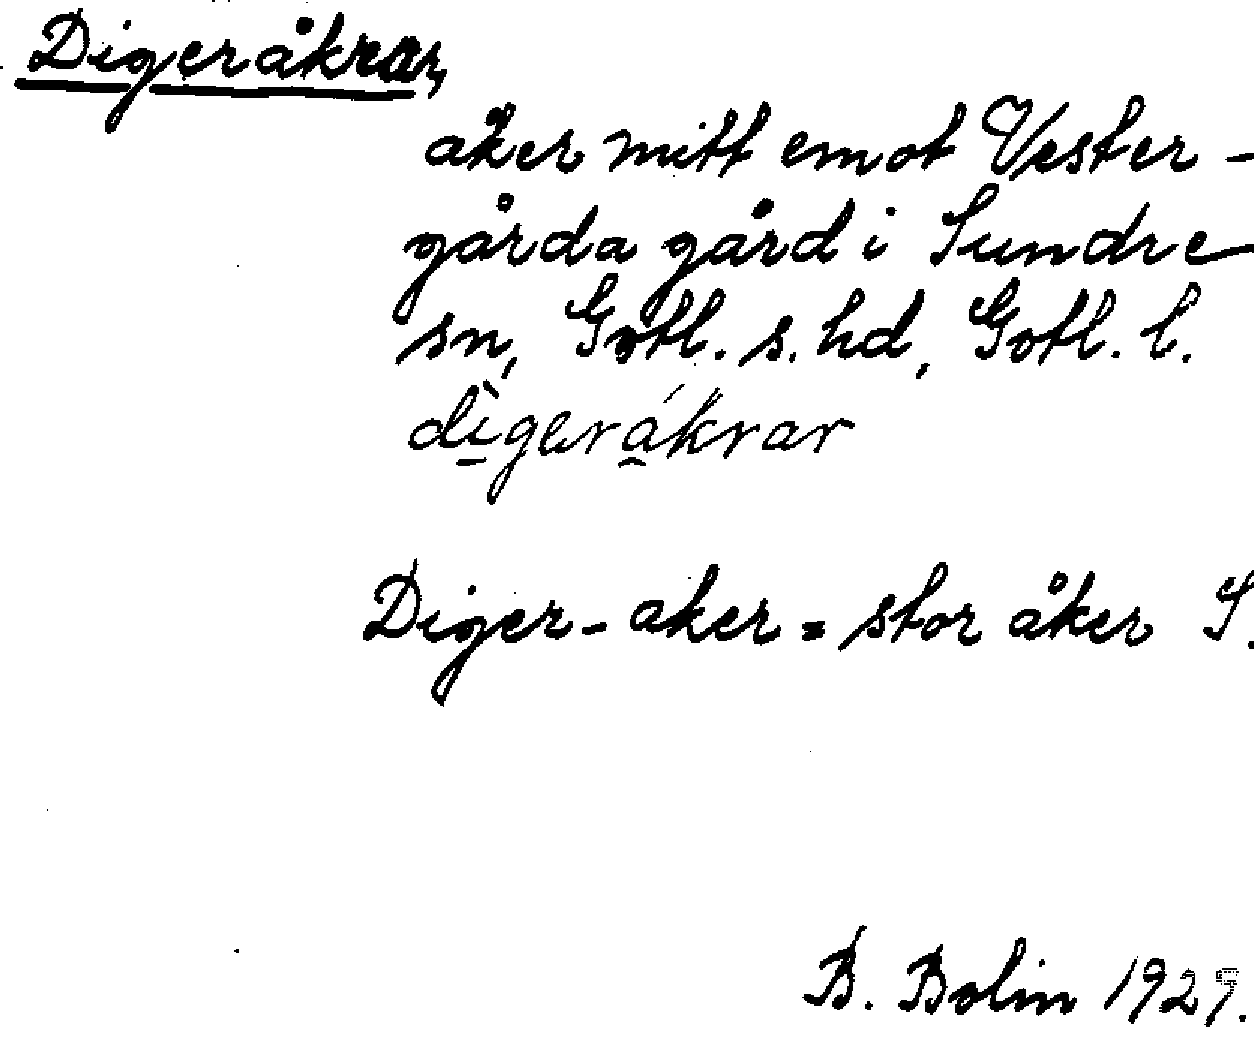 Digeråkrar,
åker mitt emot Vester-
gårda gård i Sundre
sn, Gotl. s. hd, Gotl. l.
dìgerákrar
Diger-aker = stor åker S.
B. Bolin 1929.